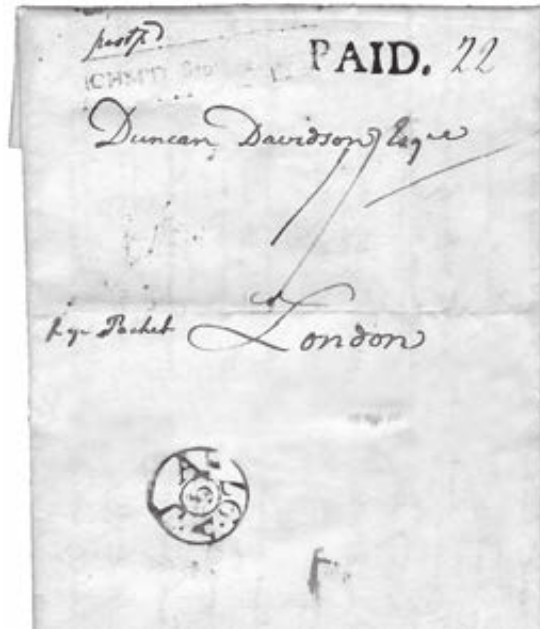 postpd
PAID. 22
Duncan Davidson Esqre
Packet London